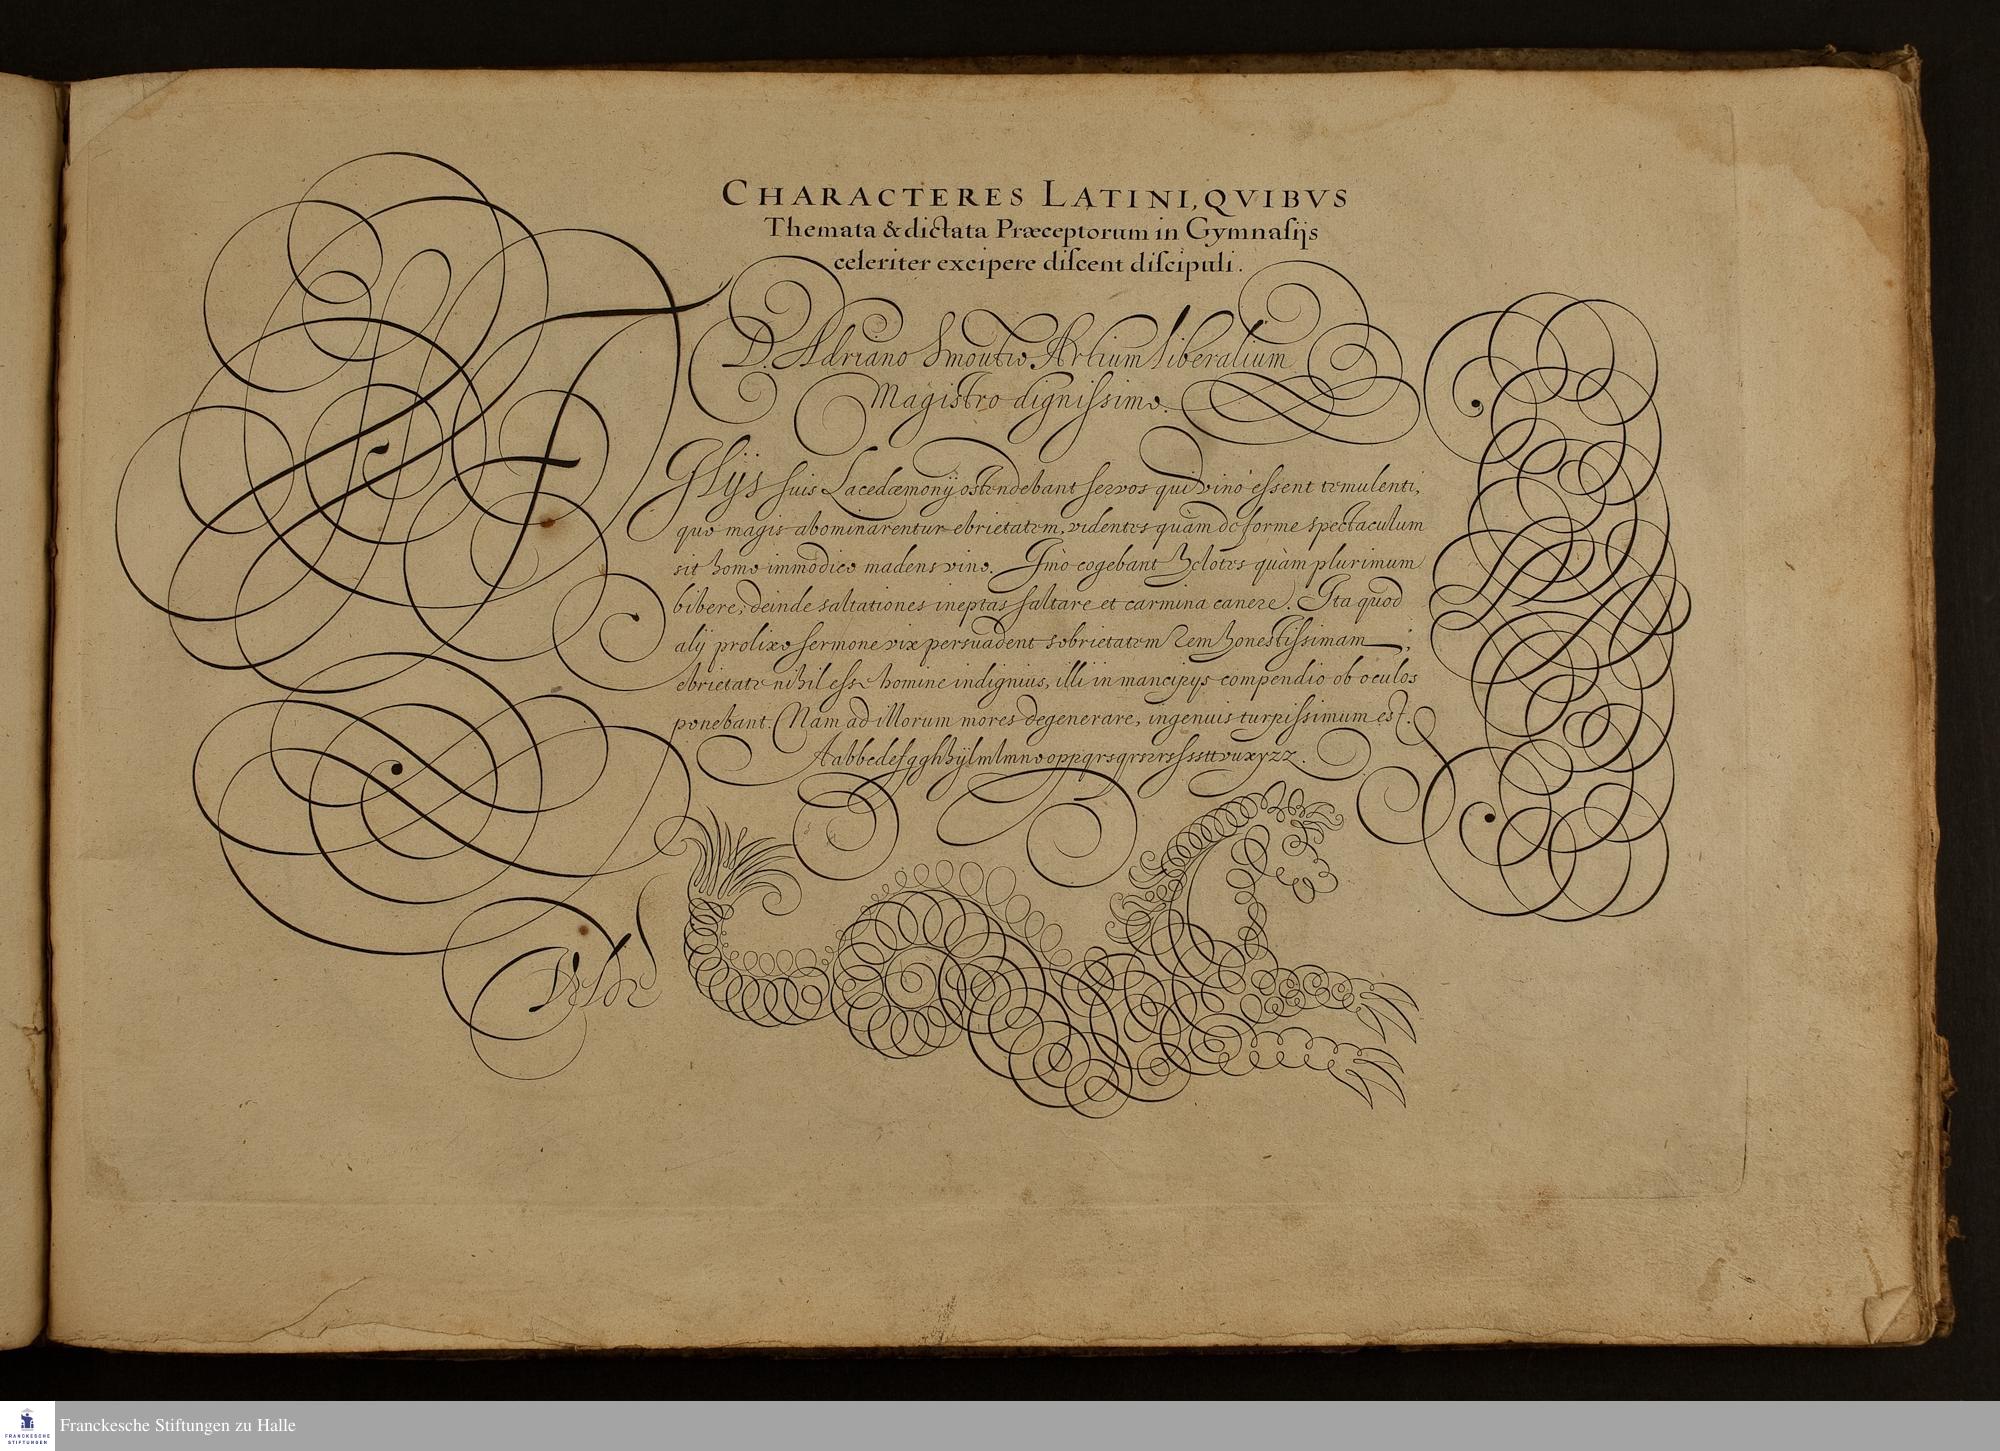 CHARACTERES LATINI, QVIBVS
Themata & dictata Præceptorum in Gymnaſijs
celeriter excipere diſcent diſcipuli.
D. Adriano Smoutio Artium Liberalium
Magistro digniſsimo.
Filijs ſuis Lacedæmonij ostendebant ſervos qui vino eſsent temulenti,
quo magis abominarentur ebrietatem, videntes quàm deforme spectaculum
sit homo immodico madens vino. Imò cogebant Helotes quàm plurimum
bibere, deinde saltationes ineptas ſaltare et carmina canere. Ita quod
alij prolixo ſermone vix persuadent sobrietatem rem honestiſsimam;
ebrietate nihil eſse homine indignius, illi in mancipijs compendio ob oculos
ponebant. Nam ad illorum mores degenerare, ingenuis turpiſsimum est.
Aabbcdefgghhijlmlmnooppqrsqrsrrsſsssttvuxyzz.
FRANCKESCHE
STIFTUNGEN
Franckesche Stiftungen zu Halle